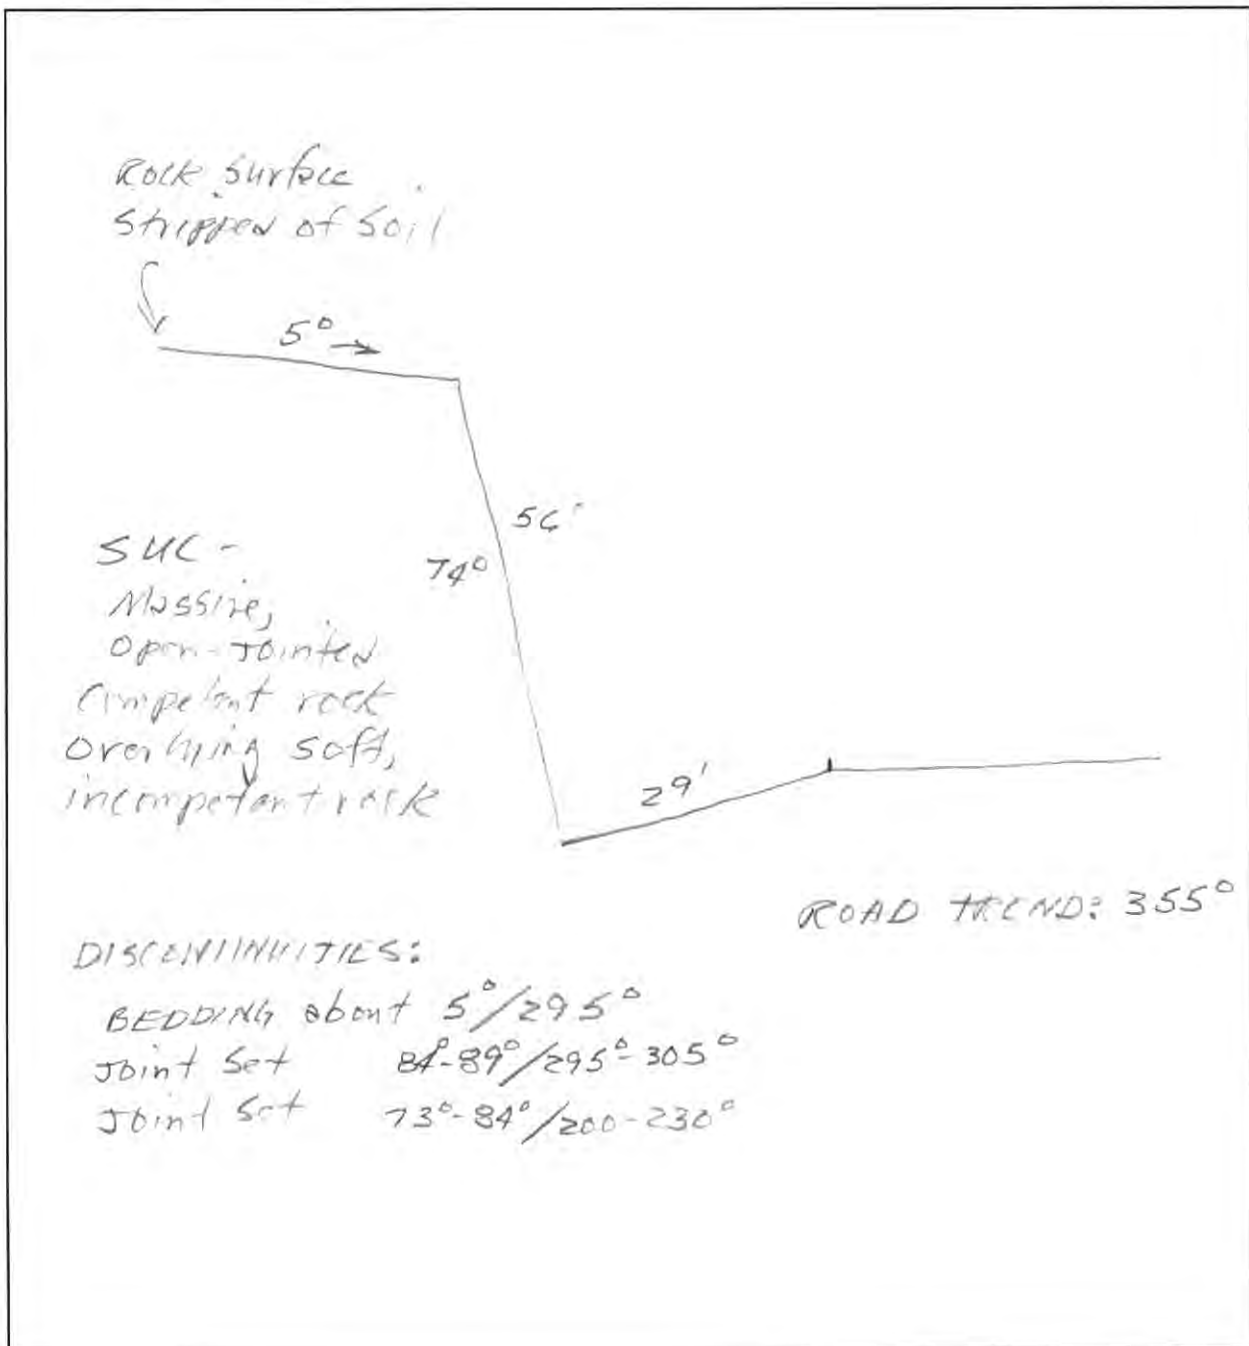 Rock Surface
Stripped of Soil
5°
56'
74°
SUC -
Massive,
Open-Jointed
Competent rock
Overlying soft,
incompetant rock
29'
ROAD TREND: 355°
DISCONTINUITIES:
BEDDING about 5°/295°
Joint Set 84-89°/295°-305°
Joint Set 73°-84°/200-230°